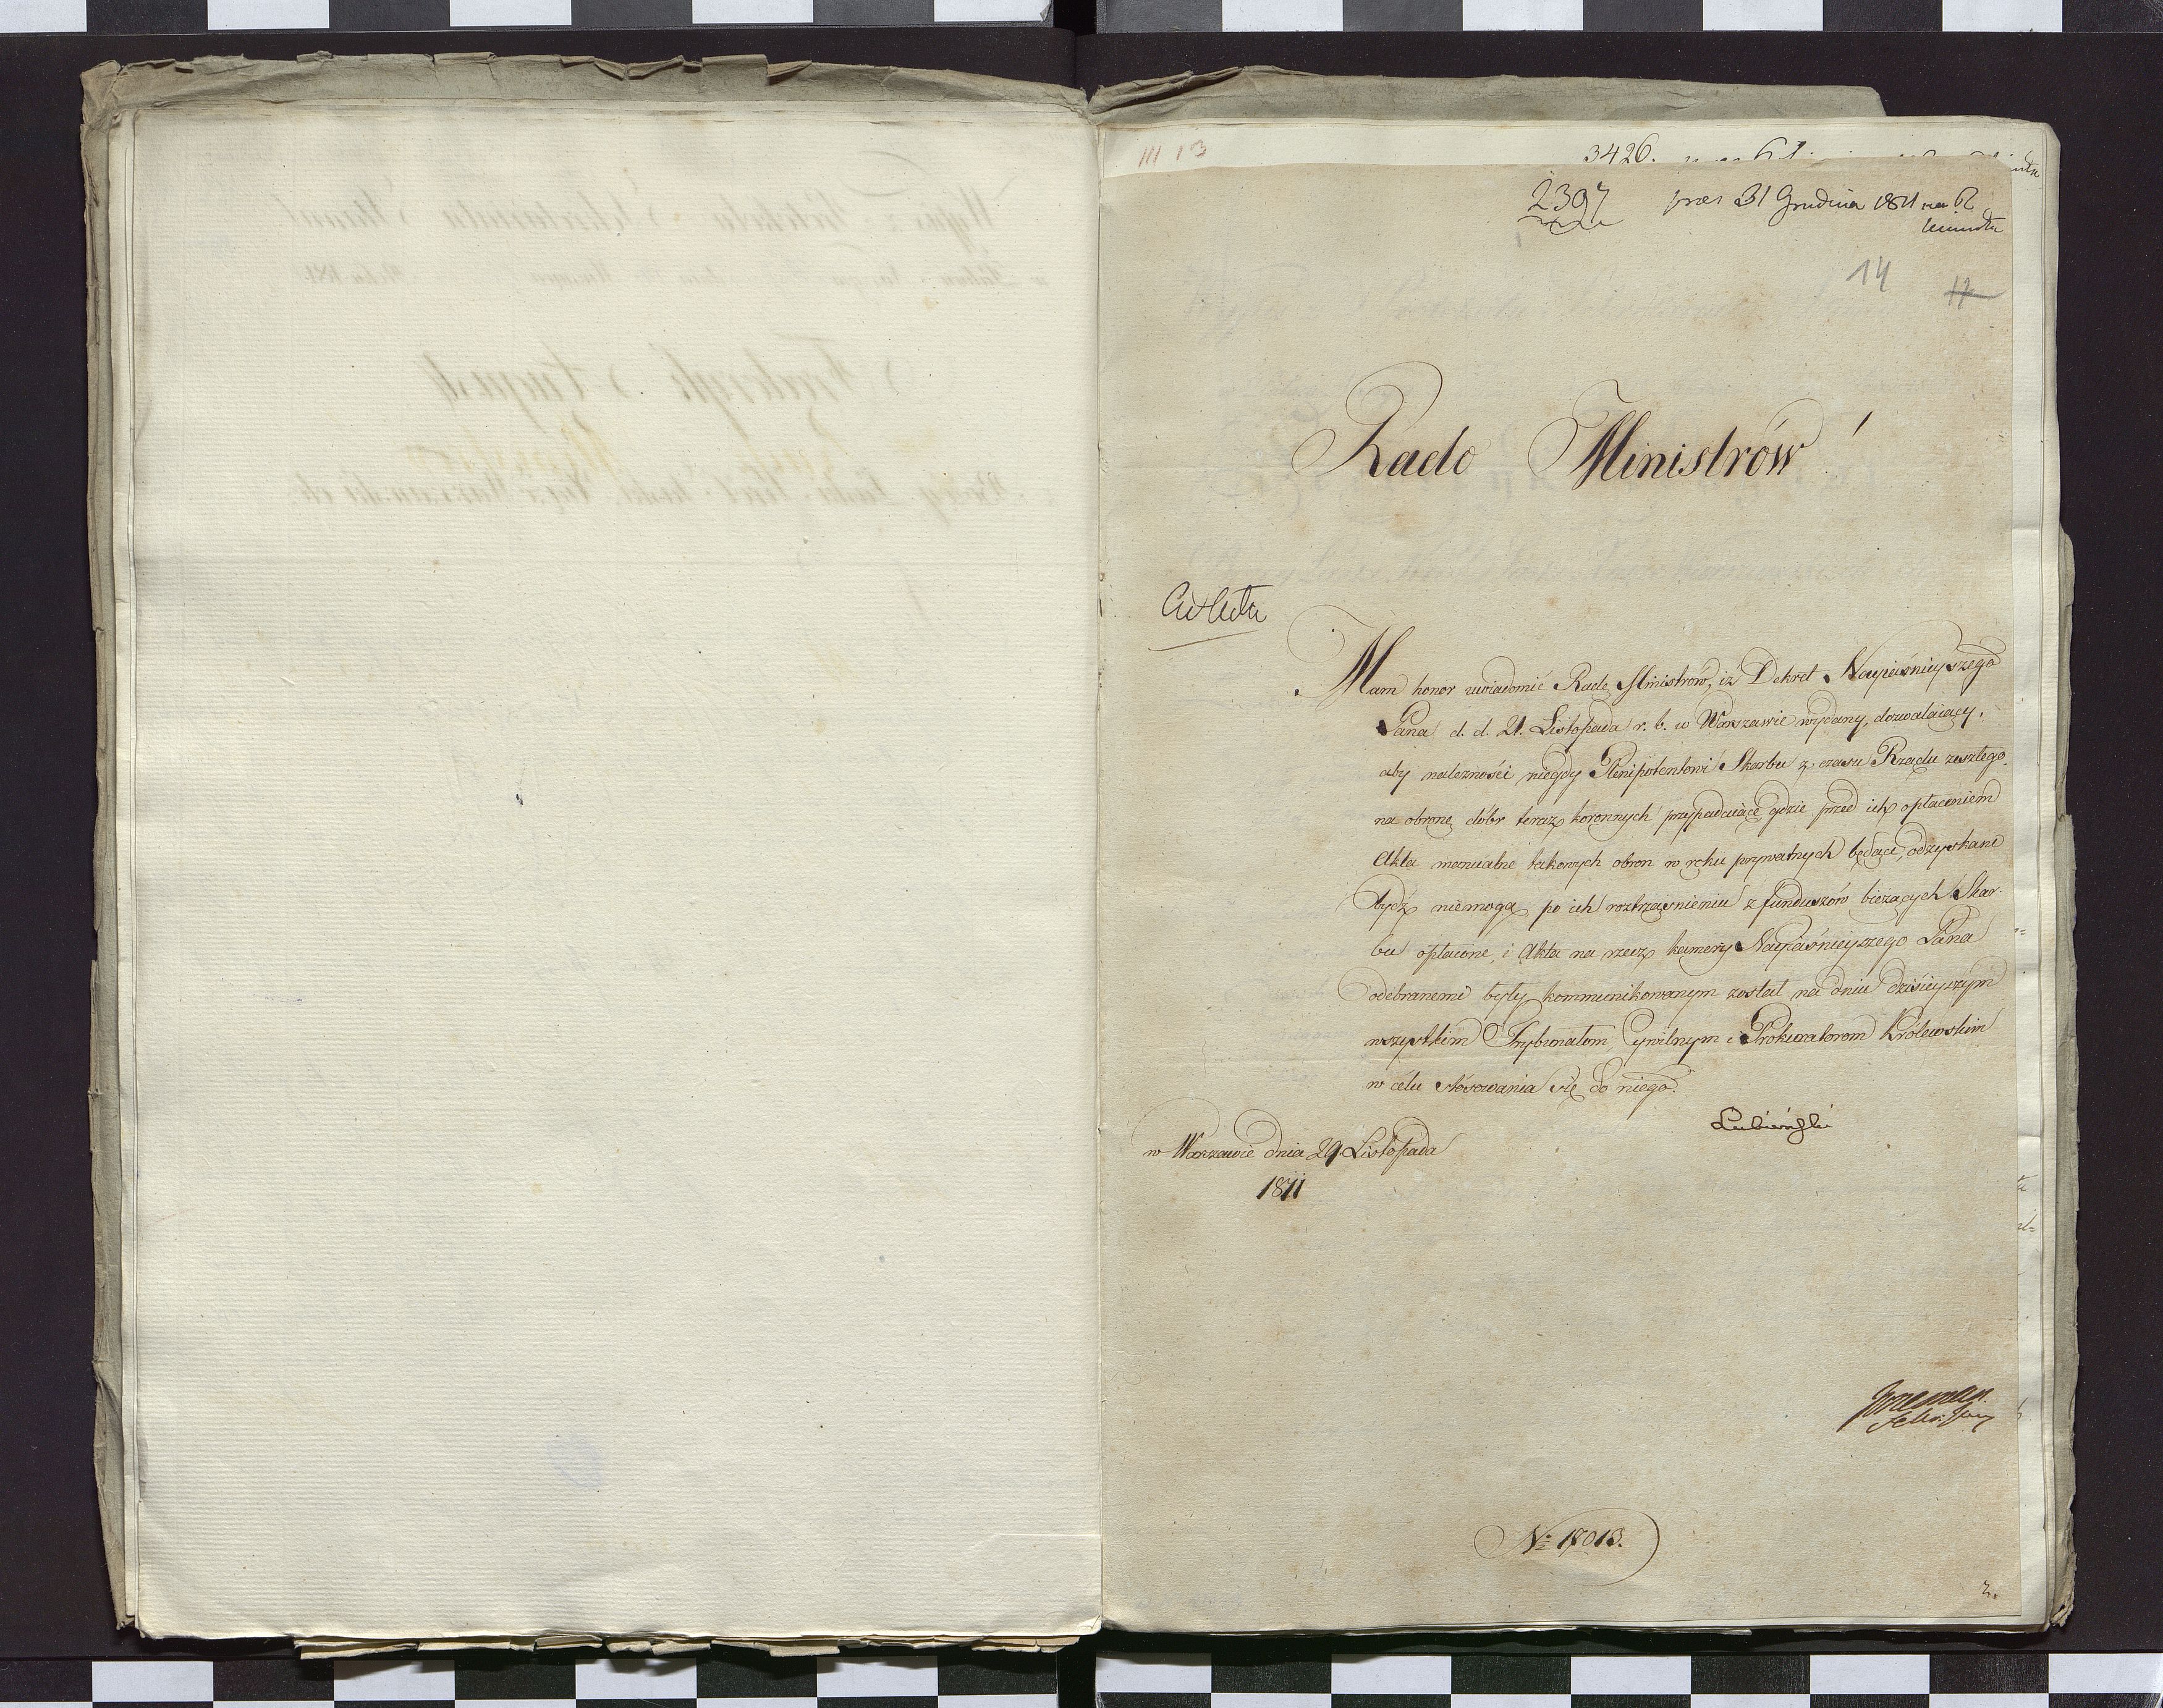 3426.
2397 prez 31 Grudnia 1811 na 62
14 17
Rado Ministrów!
Ad Acta
Mam honor uwiadomić Radę Ministrów, iż Dekret Nayiaśnieyszego
Pana d. d. 21. Listopada r. b. w Warszawie wydany, dozwalaiący,
aby należności niegdy Plenipotentowi Skarbu z czasu Rządu zeszłego
na obronę dóbr teraz koronnych przypadaiące, gdzie przed ich opłaceniem
Akta manualne takowych obron w ręku prywatnych będące, odzyskane
bydź niemogą, po ich roztrząśnieniu z funduszów bieżących Skar-
bu opłacone, i Akta na rzecz kamery Nayiaśnieyszego Pana
odebranemi były, kommunikowanym został na dniu dzisieyszym
wszystkim Trybunałom Cywilnym i Prokuratorom Królewskim
w celu stósowania się do niego.
Łubieński
w Warszawie dnia 29 Listopada
1811
No 17013.
2.